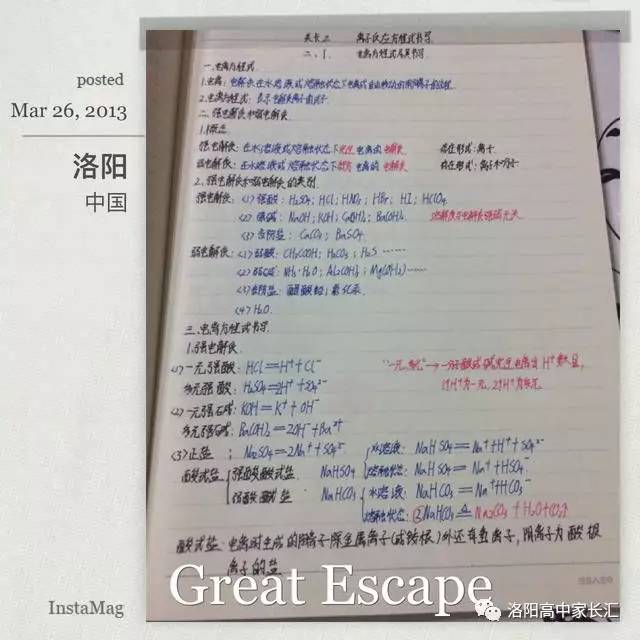 posted
Mar 26, 2013
洛阳
中国
离子反应方程式书写
二、1. 电离方程式及其书写
一.电离方程式
1.电离:电解质在水溶液或熔融状态下电离成自由移动的离子的过程.
2.电离方程式:表示电解质离子的式子
二.强电解质和弱电解质
1.概念
强电解质:在水溶液或熔融状态下完全电离的电解质 存在形式:离子.
弱电解质:在水溶液或熔融状态下部分电离的电解质 存在形式:离子和分子
2.强电解质和弱电解质的类别.
强电解质:(1)强酸:H₂SO₄;HCl;HNO₃;HBr;HI;HClO₄.
(2)强碱:NaOH;KOH;Ca(OH)₂;Ba(OH)₂ 溶解度与电解质强弱无关
(3)含盐:CaCO₃;BaSO₄.
弱电解质:(1)弱酸:CH₃COOH;H₂CO₃;H₂S······
(2)弱碱:NH₃·H₂O;Al(OH)₃;Mg(OH)₂······
(3)盐:醋酸铅;氯化汞.
(4)H₂O.
三.电离方程式书写.
1.强电解质
(1)一元强酸:HCl=H⁺+Cl⁻ 一分子酸或碱完全电离出H⁺数目,
多元强酸:H₂SO₄=2H⁺+SO₄²⁻ 1个H⁺为一元,2个H⁺为多元
(2)一元强碱:KOH=K⁺+OH⁻
多元强碱:Ba(OH)₂=2OH⁻+Ba²⁺
(3)正盐:Na₂SO₄=2Na⁺+SO₄²⁻ 水溶液:NaHSO₄=Na⁺+H⁺+SO₄²⁻
酸式盐 强酸酸式盐 NaHSO₄ 熔融状态:NaHSO₄=Na⁺+HSO₄⁻
弱酸酸式盐 NaHCO₃ 水溶液:NaHCO₃=Na⁺+HCO₃⁻
熔融状态:②NaHCO₃≜Na₂CO₃+H₂O+CO₂↑
酸式盐:电离时生成的阳离子除金属离子(或铵根)外还有氢离子,阴离子为酸根
离子的盐
Great Escape
InstaMag
洛阳高中家长汇